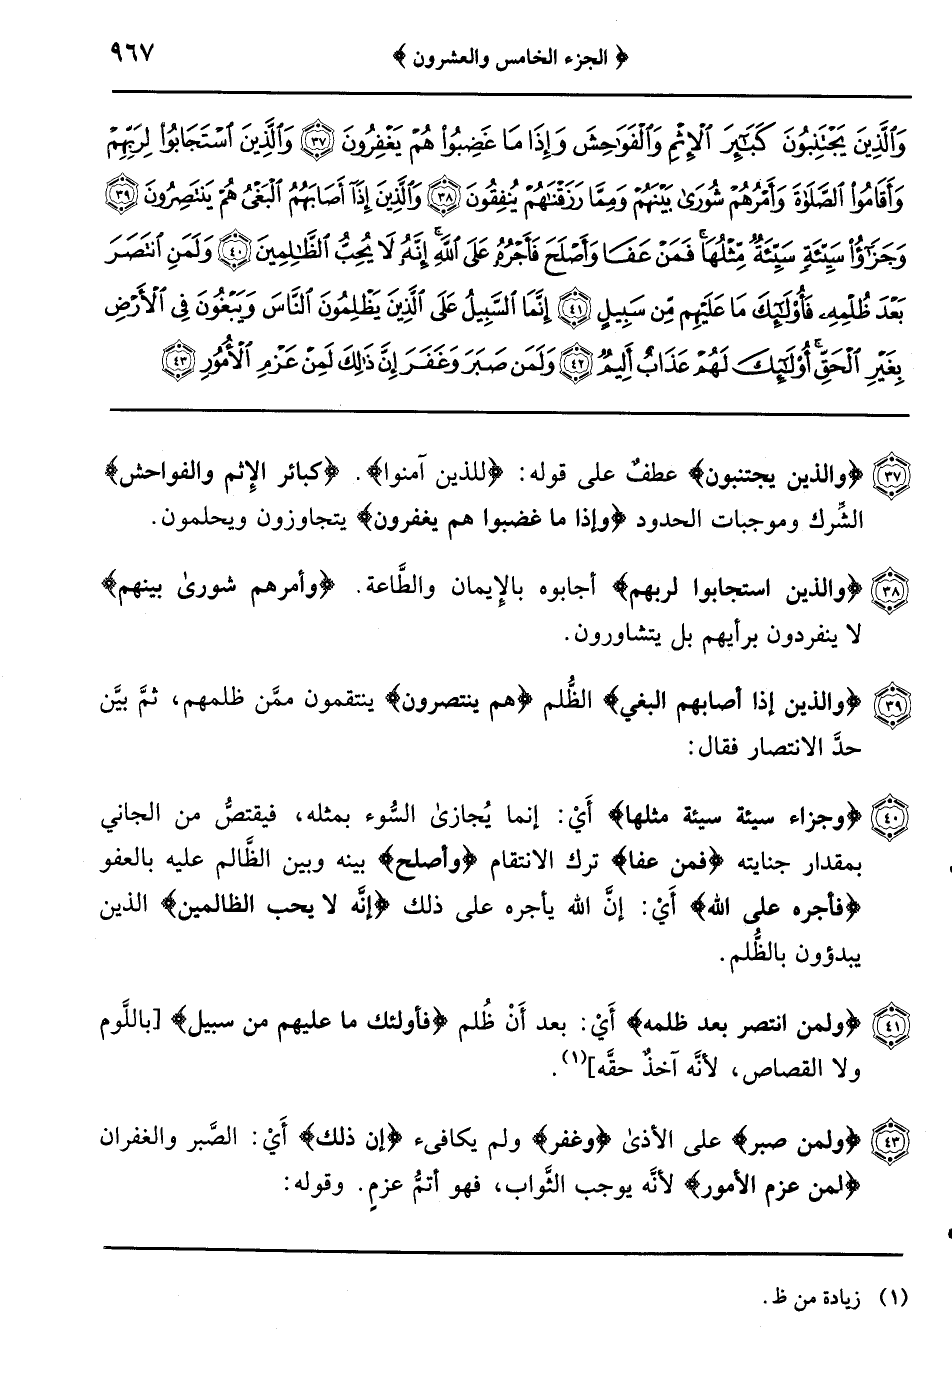 ﴿ الجزء الخامس والعشرون ﴾ ٩٦٧
وَالَّذِينَ يَجْتَنِبُونَ كَبَائِرَ الْإِثْمِ وَالْفَوَاحِشَ وَإِذَا مَا غَضِبُوا هُمْ يَغْفِرُونَ ٣٧ وَالَّذِينَ اسْتَجَابُوا لِرَبِّهِمْ
وَأَقَامُوا الصَّلَاةَ وَأَمْرُهُمْ شُورَىٰ بَيْنَهُمْ وَمِمَّا رَزَقْنَاهُمْ يُنفِقُونَ ٣٨ وَالَّذِينَ إِذَا أَصَابَهُمُ الْبَغْيُ هُمْ يَنتَصِرُونَ ٣٩
وَجَزَاؤُا سَيِّئَةٍ سَيِّئَةٌ مِّثْلُهَا ۖ فَمَنْ عَفَا وَأَصْلَحَ فَأَجْرُهُ عَلَى اللَّهِ ۚ إِنَّهُ لَا يُحِبُّ الظَّالِمِينَ ٤٠ وَلَمَنِ انتَصَرَ
بَعْدَ ظُلْمِهِ فَأُولَٰئِكَ مَا عَلَيْهِم مِّن سَبِيلٍ ٤١ إِنَّمَا السَّبِيلُ عَلَى الَّذِينَ يَظْلِمُونَ النَّاسَ وَيَبْغُونَ فِي الْأَرْضِ
بِغَيْرِ الْحَقِّ ۚ أُولَٰئِكَ لَهُمْ عَذَابٌ أَلِيمٌ ٤٢ وَلَمَن صَبَرَ وَغَفَرَ إِنَّ ذَٰلِكَ لَمِنْ عَزْمِ الْأُمُورِ ٤٣
٣٧ ﴿والذين يجتنبون﴾ عطفٌ على قوله: ﴿للذين آمنوا﴾. ﴿كبائر الإثم والفواحش﴾
الشِّرك وموجبات الحدود ﴿وإذا ما غضبوا هم يغفرون﴾ يتجاوزون ويحلمون.
٣٨ ﴿والذين استجابوا لربهم﴾ أجابوه بالإيمان والطَّاعة. ﴿وأمرهم شورىٰ بينهم﴾
لا ينفردون برأيهم بل يتشاورون.
٣٩ ﴿والذين إذا أصابهم البغي﴾ الظُّلم ﴿هم ينتصرون﴾ ينتقمون ممَّن ظلمهم، ثمَّ بيَّن
حدَّ الانتصار فقال:
٤٠ ﴿وجزاء سيئة سيئة مثلها﴾ أَيْ: إنما يُجازىٰ السُّوء بمثله، فيقتصُّ من الجاني
بمقدار جنايته ﴿فمن عفا﴾ ترك الانتقام ﴿وأصلح﴾ بينه وبين الظَّالم عليه بالعفو
﴿فأجره على الله﴾ أَيْ: إنَّ الله يأجره على ذلك ﴿إنَّه لا يحب الظالمين﴾ الذين
يبدؤون بالظُّلم.
٤١ ﴿ولمن انتصر بعد ظلمه﴾ أَيْ: بعد أَنْ ظُلم ﴿فأولئك ما عليهم من سبيل﴾ [باللَّوم
ولا القصاص، لأنَّه آخذٌ حقَّه](١).
٤٣ ﴿ولمن صبر﴾ على الأذىٰ ﴿وغفر﴾ ولم يكافىء ﴿إن ذلك﴾ أَيْ: الصَّبر والغفران
﴿لمن عزم الأمور﴾ لأنَّه يوجب الثَّواب، فهو أتمُّ عزمٍ. وقوله:
(١) زيادة من ظ.